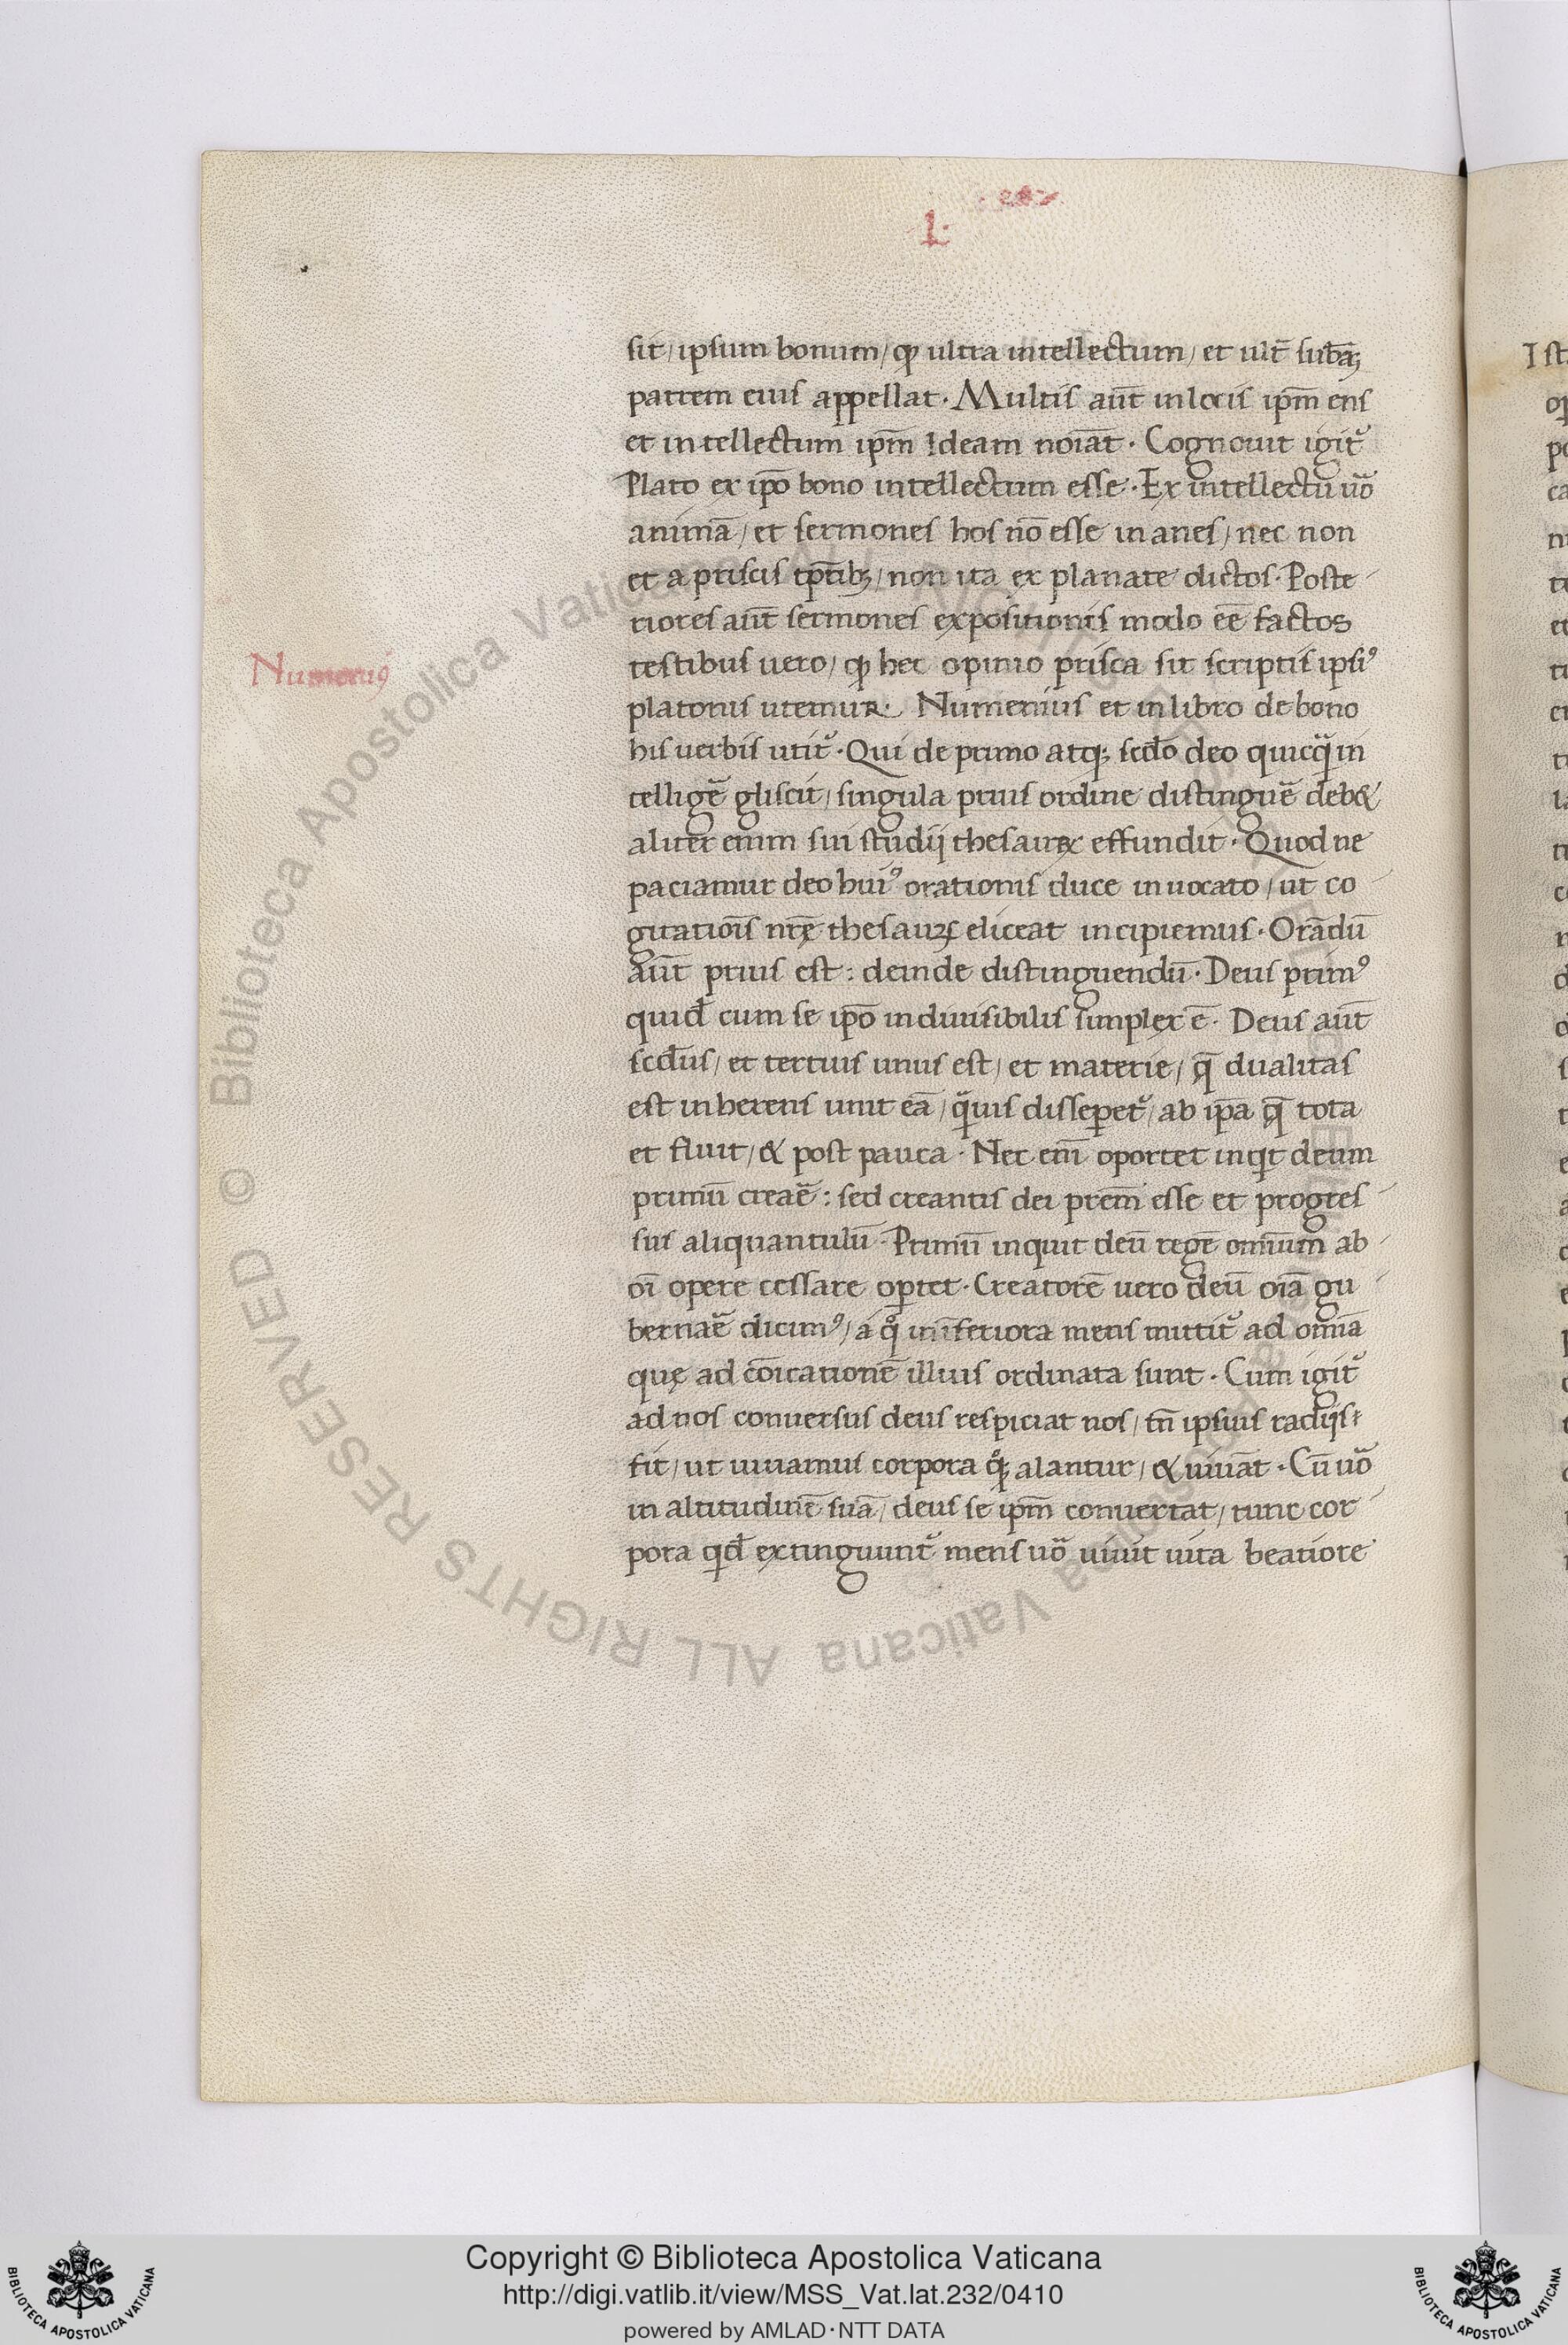 .l.
sit/ ipsum bonum/ ꝙ ultra intellectum/ et ult̄ subāꝫ
patrem eius appellat. Multis aūt in locis ipm̄ ens
et intellectum ipm̄ Ideam noīāt. Cognouit igit̃
Plato ex ipō bono intellectum esse. Ex intellectu uõ
animā/ et sermones hos nō esse inanes/ nec non
et a priscis tp̄ribꝫ/ non ita explanate dictos. Poste
riores aūt sermones expositionis modo eē factos
testibus uero/ ꝙ hec opinio prisca sit scriptis ipsiꝰ
Numeniꝰ
platonis utemur. Numenius et in libro de bono
his uerbis utit̃. Qui de primo atqꝫ scd̄o deo quicq̃ in
telligẽ gliscit/ singula prius ordine distinguẽ deb&
aliter enim sui studij thesauꝝ effundit. Quod ne
paciamur deo huiꝰ orationis duce inuocato/ ut co
gitatiōis nr̄ę thesauꝝ eliceat incipiemus. Orādū
aūt prius est: deinde distinguendū. Deus primꝰ
quid̄ cum se ipō indiuisibilis simplex ē. Deus aūt
scd̄us/ et tertius unus est/ et materie/ q̄ dualitas
est inherens unit eā/ q̃uis disseꝑet̃/ ab ip̄a q̄ tota
et fluit/ & post pauca. Nec em̄ oportet inqt deum
primū creaẽ: sed creantis dei prem̄ esse et progres
sus aliquantulū. Primū inquit deū regē omnium ab
oī opere cessare oꝑtet. Creatorē uero deū oīā gu
bernaẽ dicimꝰ/ a qͦ in īferiora mens mittit̃ ad omnia
quę ad cōicationē illius ordinata sunt. Cum igit̃
ad nos conuersus deus respiciat nos/ tn̄ ipsius radijs
fit/ ut uiuamus corpora qͦꝫ alantur/ & uiuāt. Cū uõ
in altitudinē suā/ deus se ipm̄ conuertat/ tunc cor
pora qd̄ extinguunt̃ mens uõ uiuit uita beatiore
Copyright © Biblioteca Apostolica Vaticana
http://digi.vatlib.it/view/MSS_Vat.lat.232/0410
powered by AMLAD·NTT DATA